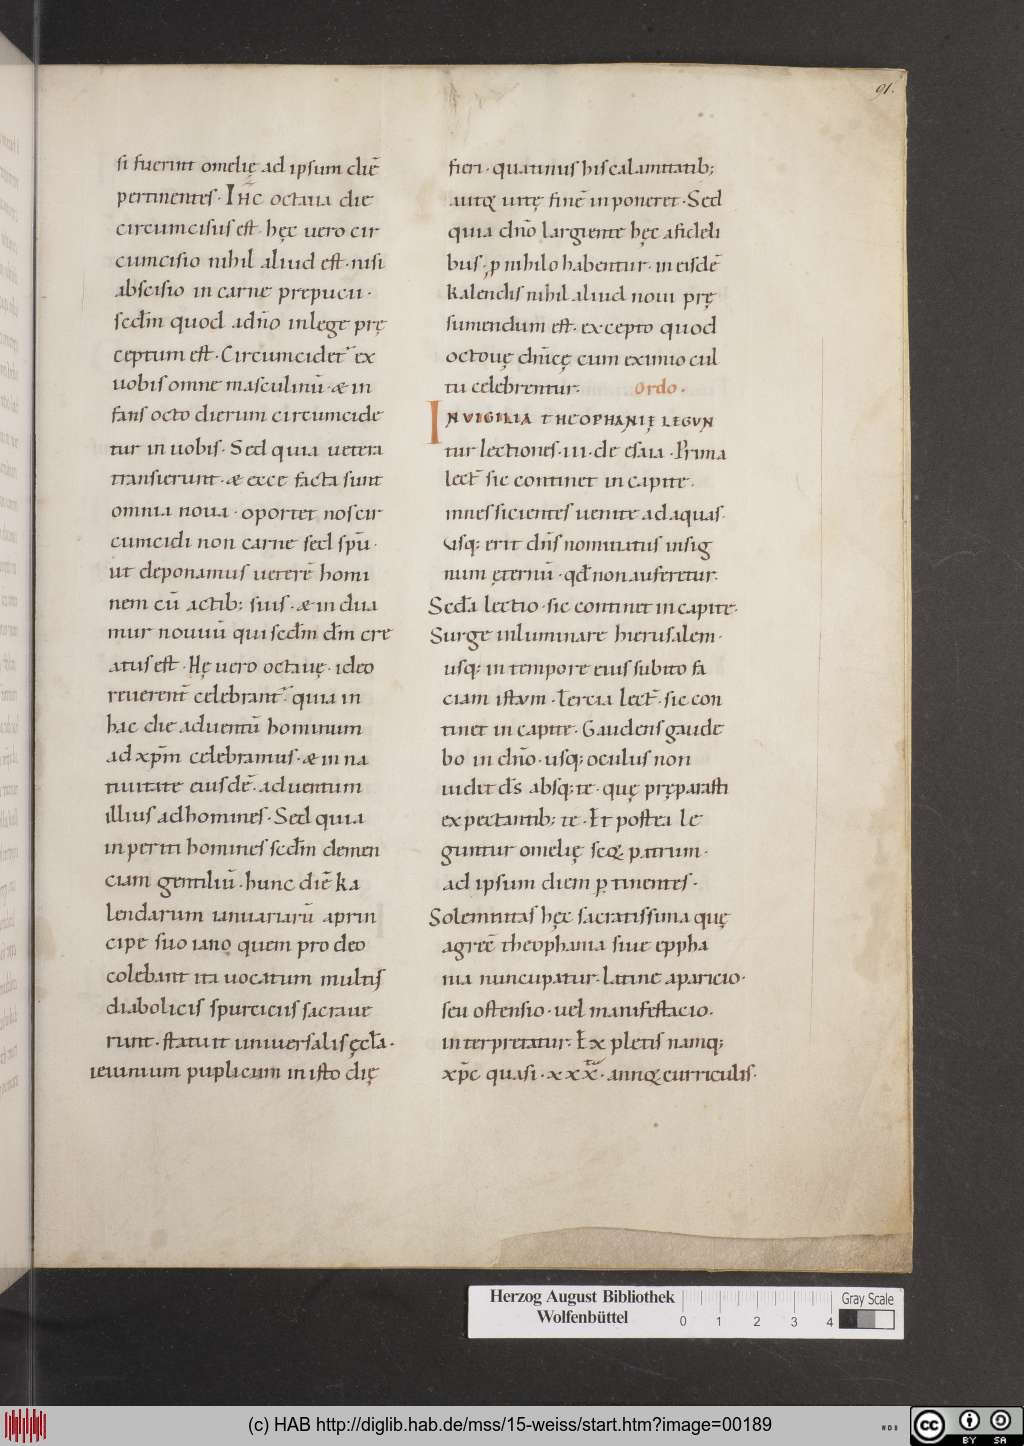 91.
si fuerint omelię ad ipsum diē
pertinentes· Ihc octaua die
circumcisus est· hęc uero cir
cumcisio nihil aliud est· nisi
abscisio in carne prepucii·
scdm quod a dno in lege prę
ceptum est· Circumcidet ex
uobis omne masculinū· & in
fans octo dierum circumcide
tur in uobis· Sed quia uetera
transierunt· & ecce facta sunt
omnia noua· oportet nos cir
cumcidi non carne sed spu·
ut deponamus ueterē homi
nem cū actib; suis· & in dua
mur nouū qui scdm dm cre
atus est· Hę uero octauę· ideo
reuerent celebrant· quia in
hac die aduentū hominum
ad xpm celebramus· & in na
tiuitate eiusdē· aduentum
illius ad homines· Sed quia
inperiti homines scdm demen
ciam gentiliū· hunc diē ka
lendarum ianuariarū a prin
cipe suo iano quem pro deo
colebant ita uocatum multis
diabolicis spurciciis sacraue
runt· statuit uniuersalis ęcla·
ieiunium puplicum in isto dię
fieri· quatinus his calamitatib;
autꝗ utę finē inponeret· Sed
quia dno largiente hęc a fideli
bus· p nihilo habentur· in eisdē
kalendis nihil aliud noui prę
sumendum est· excepto quod
octouę dnicę cum eximio cul
tu celebrentur· Ordo·
IN VIGILIA THEOPHANIĘ LEGUN
tur lectiones· iii· de esaia· Prima
lect sic continet in capite·
mnes sicientes uenite ad aquas·
Usq; erit dns nominatus in sig
num ęternū· qđ non auferetur·
Scda lectio· sic continet in capite·
Surge inluminare hierusalem·
usq; in tempore eius subito fa
ciam istum· Tercia lect· sic con
tinet in capite· Gaudens gaude
bo in dno· usq; oculus non
uidit ds absq; te· quę pręparasti
expectantib; te· Et postea le
guntur omelię scꝗ patrum·
ad ipsum diem ꝑtinentes·
Solemnitas hęc sacratissima quę
a grec theophania siue eppha
nia nuncupatur· latine aparicio·
seu ostensio· uel manifestacio·
interpretatur· Expletis namq;
xpc quasi· xxx· annoꝗ curriculis·
Herzog August Bibliothek
Wolfenbüttel
0 1 2 3 4
Gray Scale
(c) HAB http://diglib.hab.de/mss/15-weiss/start.htm?image=00189
WDB
cc BY SA